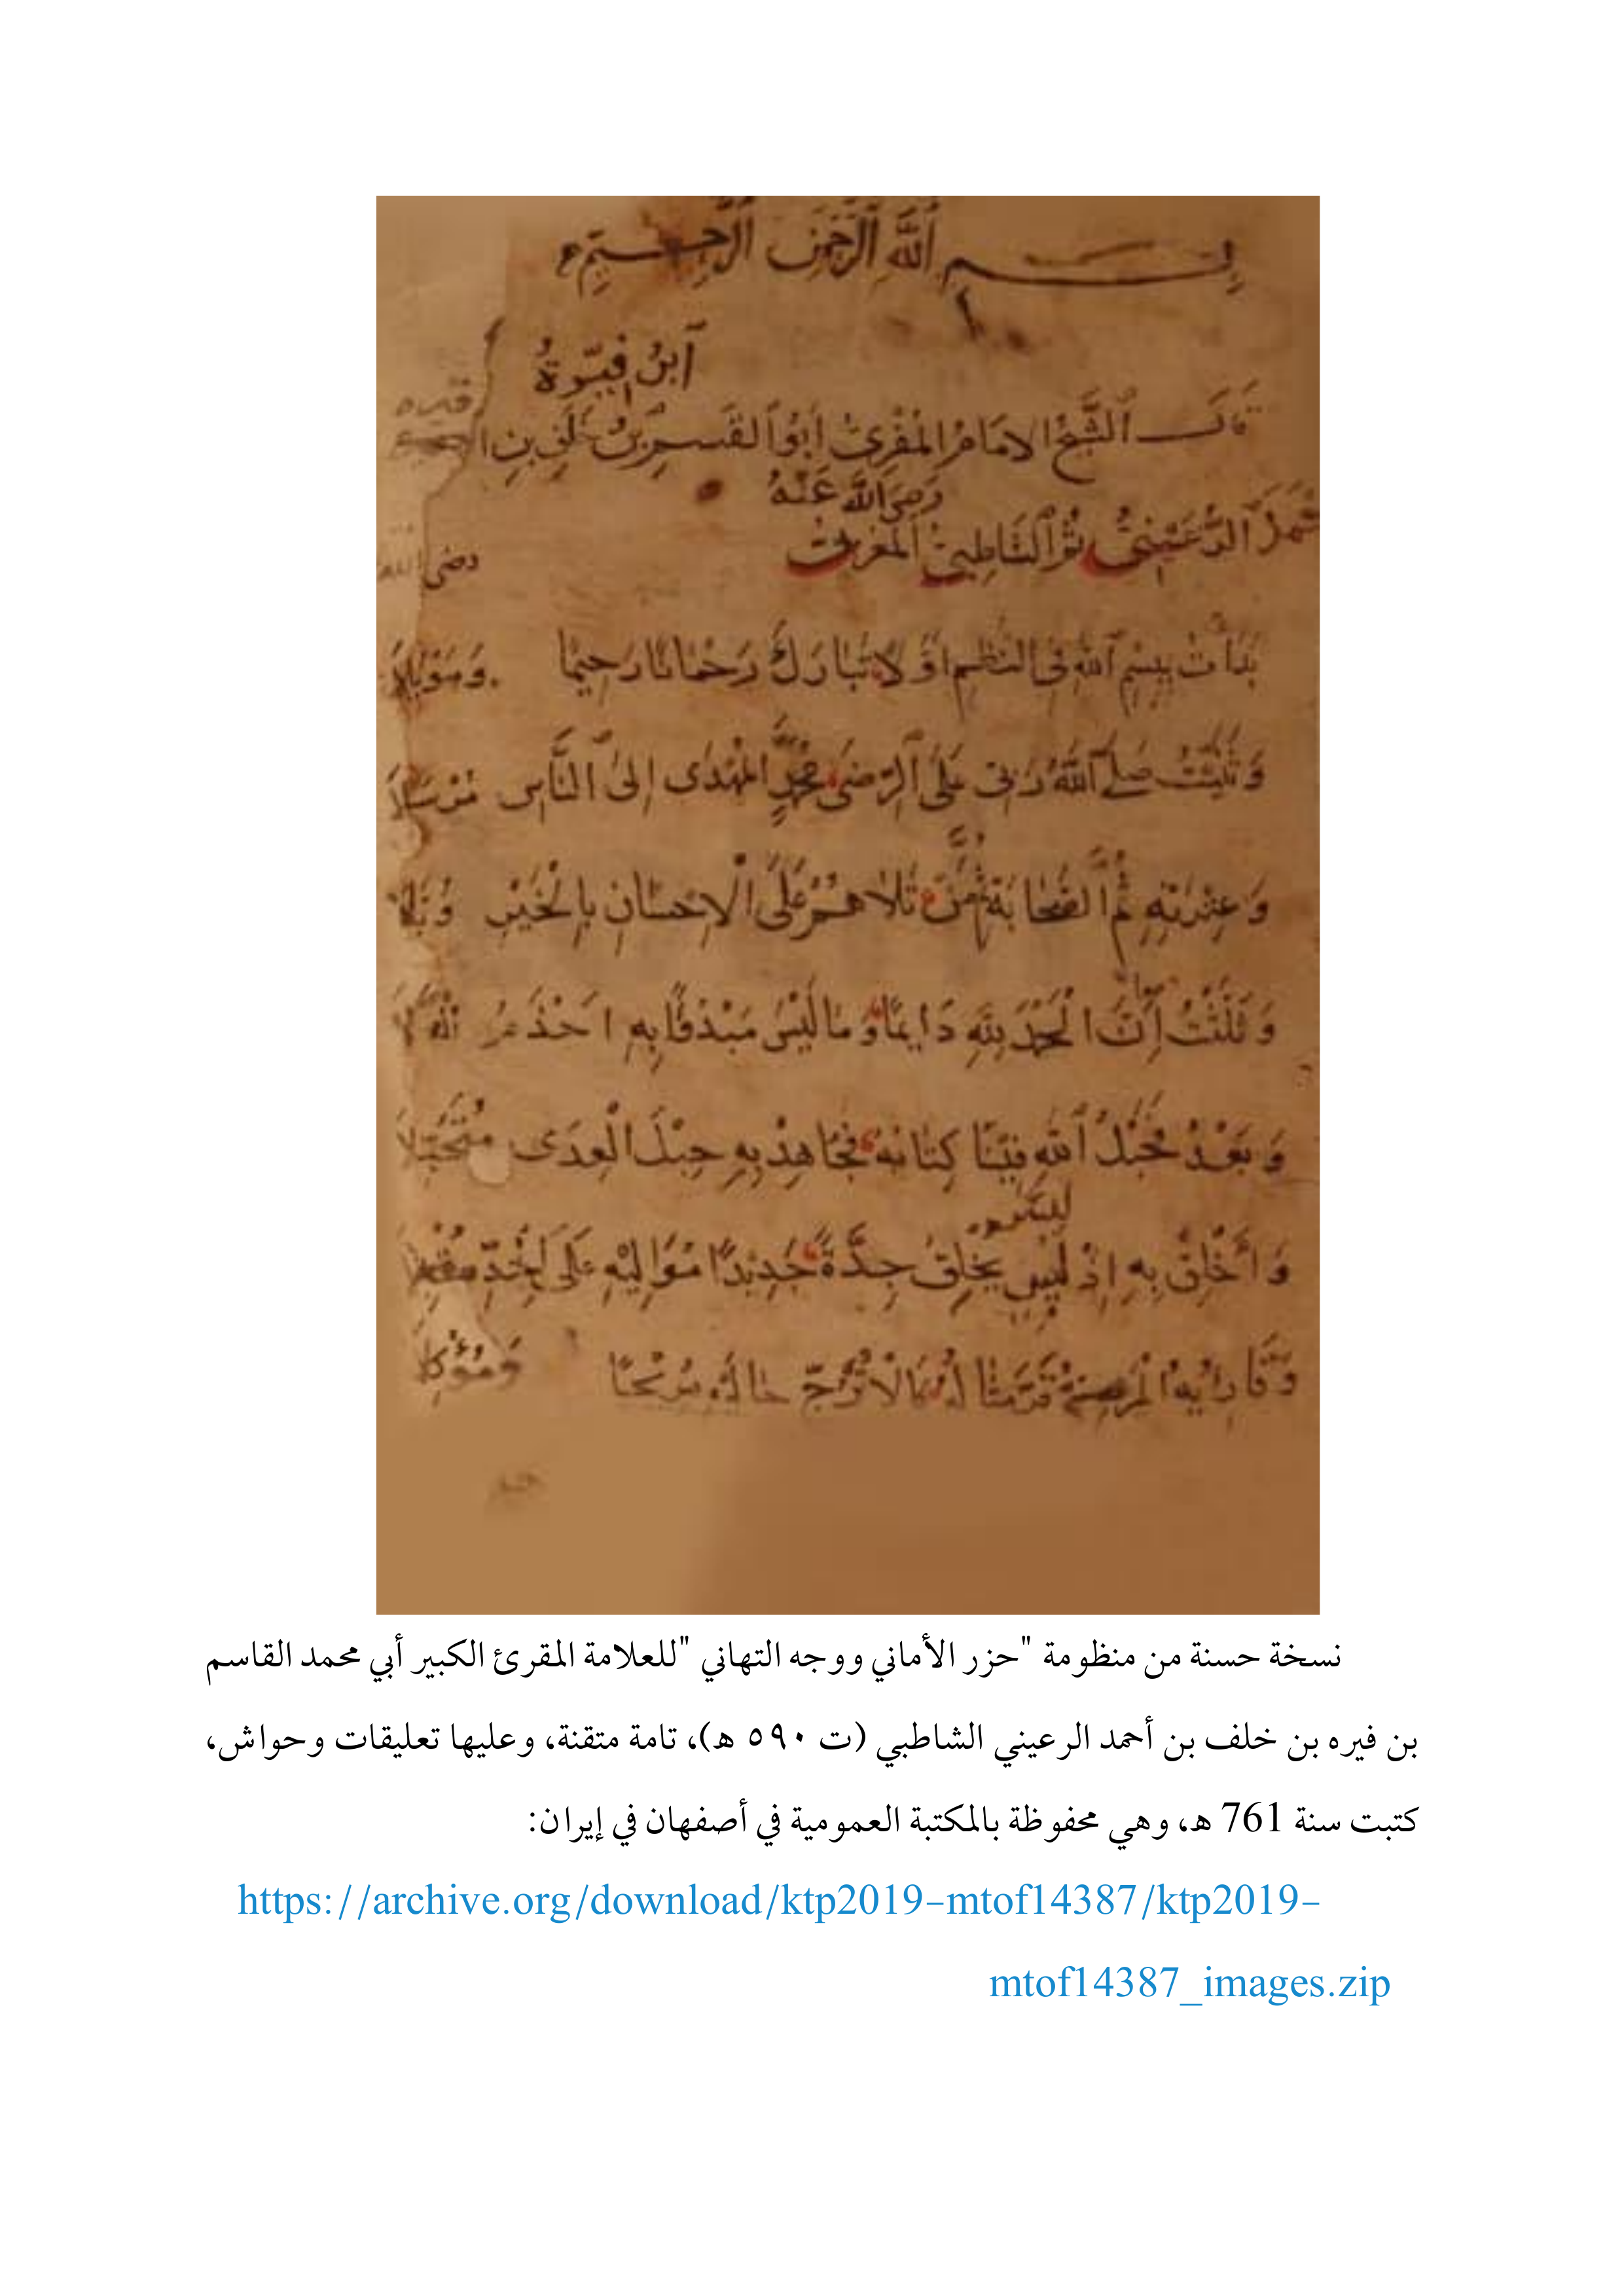 بِسْمِ اللَّهِ الرَّحْمٰنِ الرَّحِيمِ
ابنُ فِيرُّةُ
فيره
قال الشَّيْخُ الامَامُ المُقْرِئُ أبُو القَسِمِ بنُ خَلَفِ بنِ ا
رَضِيَ اللهُ عَنْهُ
حْمَدَ الرُّعَيْنِيُّ ثُمَّ الشَّاطِبِيُّ
رضى الله
بَدَأْتُ بِبِسْمِ اللهِ فِى النَّظْمِ اوَّلَا تَبَارَكَ رَحْمَانًا رَحِيمًا وَمَوْئِلَا
وَثَنَّيْتُ صَلَّى اللهُ رَبِّى عَلَى الرِّضَى مُحَمَّدٍ المُهْدَى إِلَى النَّاسِ مُرْسَلَا
وَعِتْرَتِهِ ثُمَّ الصَّحَابَةِ ثُمَّ مَنْ تَلَاهُمْ عَلَى الْاِحْسَانِ بِالْخَيْرِ وُبَّلَا
وَثَلَّثْتُ أَنَّ الْحَمْدَ لِلَّهِ دَايِمًا وَمَا لَيْسَ مَبْدُوًّا بِهِ اَجْذَمُ
وَبَعْدُ فَحَبْلُ اللهِ فِينَا كِتَابُهُ فَجَاهِدْ بِهِ حِبْلَ الْعِدَى مُتَحَبِّلَا
وَأَخْلِقْ بِهِ إِذْ لَيْسَ يَخْلَقُ جِدَّةً جَدِيدًا مُوَالِيهِ عَلَى الْجِدِّ مُقْبِلَا
وَقَارِئُهُ الْمَرْضِيُّ قَرَّ مِثَالُهُ كَالْاُتْرُجِّ حَالَيْهِ مُرِيحًا وَمُؤْكَلَا
نسخة حسنة من منظومة "حزر الأماني ووجه التهاني "للعلامة المقرئ الكبير أبي محمد القاسم
بن فيره بن خلف بن أحمد الرعيني الشاطبي (ت ٥٩٠ ه)، تامة متقنة، وعليها تعليقات وحواش،
كتبت سنة 761 ه، وهي محفوظة بالمكتبة العمومية في أصفهان في إيران:
https://archive.org/download/ktp2019-mtof14387/ktp2019-
mtof14387_images.zip